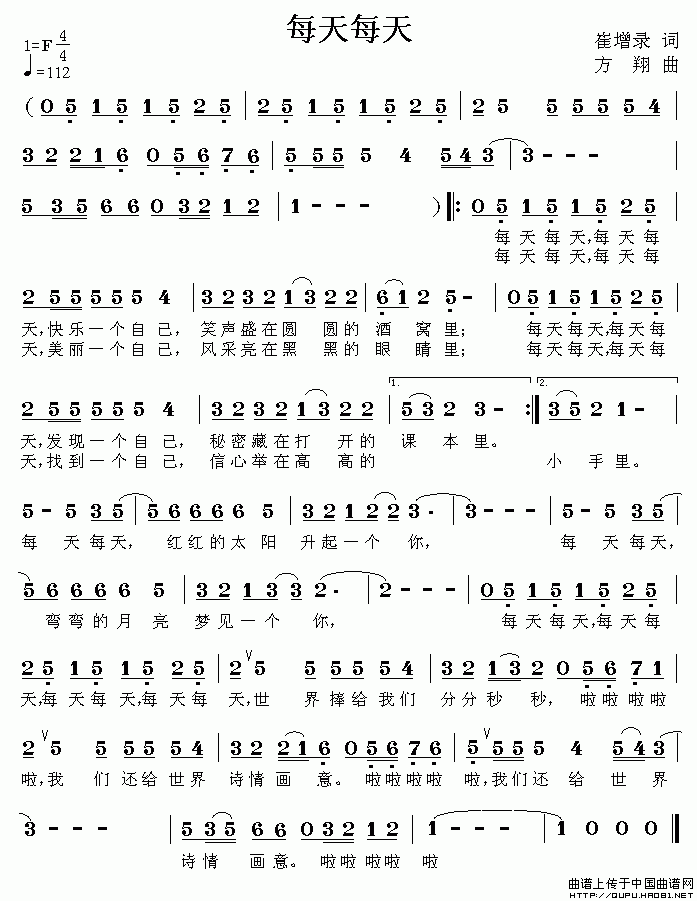 每天每天
1=F 4/4
崔增录 词
♩=112
方 翔 曲
(0 5 1 5 1 5 2 5 | 2 5 1 5 1 5 2 5 | 2 5 5 5 5 5 4
3 2 2 1 6 0 5 6 7 6 | 5 5 5 5 4 5 4 3 | 3 - - -
5 3 5 6 6 0 3 2 1 2 | 1 - - - ) ‖: 0 5 1 5 1 5 2 5 |
每天每天,每天每
每天每天,每天每
2 5 5 5 5 5 5 4 | 3 2 3 2 1 3 2 2 | 6 1 2 5 - | 0 5 1 5 1 5 2 5 |
天,快乐一个自己, 笑声盛在圆 圆的 酒 窝里; 每天每天,每天每
天,美丽一个自己, 风采亮在黑 黑的 眼 睛里; 每天每天,每天每
1. 2.
2 5 5 5 5 5 5 4 | 3 2 3 2 1 3 2 2 | 5 3 2 3 - :‖ 3 5 2 1 - |
天,发现一个自己, 秘密藏在打 开的 课 本里。
天,找到一个自己, 信心举在高 高的 小 手里。
5 - 5 3 5 | 5 6 6 6 6 5 | 3 2 1 2 2 3 . | 3 - - - | 5 - 5 3 5 |
每 天每天, 红红的太 阳 升起一个 你, 每 天每天,
5 6 6 6 6 5 | 3 2 1 3 3 2 . | 2 - - - | 0 5 1 5 1 5 2 5 |
弯弯的月 亮 梦见一个 你, 每天每天,每天每
2 5 1 5 1 5 2 5 | 2 V 5 5 5 5 5 4 | 3 2 1 3 2 0 5 6 7 1 |
天,每天每天,每天每 天,世 界捧给我们 分分秒 秒, 啦啦啦啦
2 V 5 5 5 5 5 4 | 3 2 2 1 6 0 5 6 7 6 | 5 V 5 5 5 4 5 4 3 |
啦,我 们还给世界 诗情画 意。 啦啦啦啦 啦,我们还 给 世 界
3 - - - | 5 3 5 6 6 0 3 2 1 2 | 1 - - - | 1 0 0 0 ‖
诗情 画意。 啦啦 啦啦 啦
曲谱上传于中国曲谱网
HTTP://QUPU.HAO81.NET